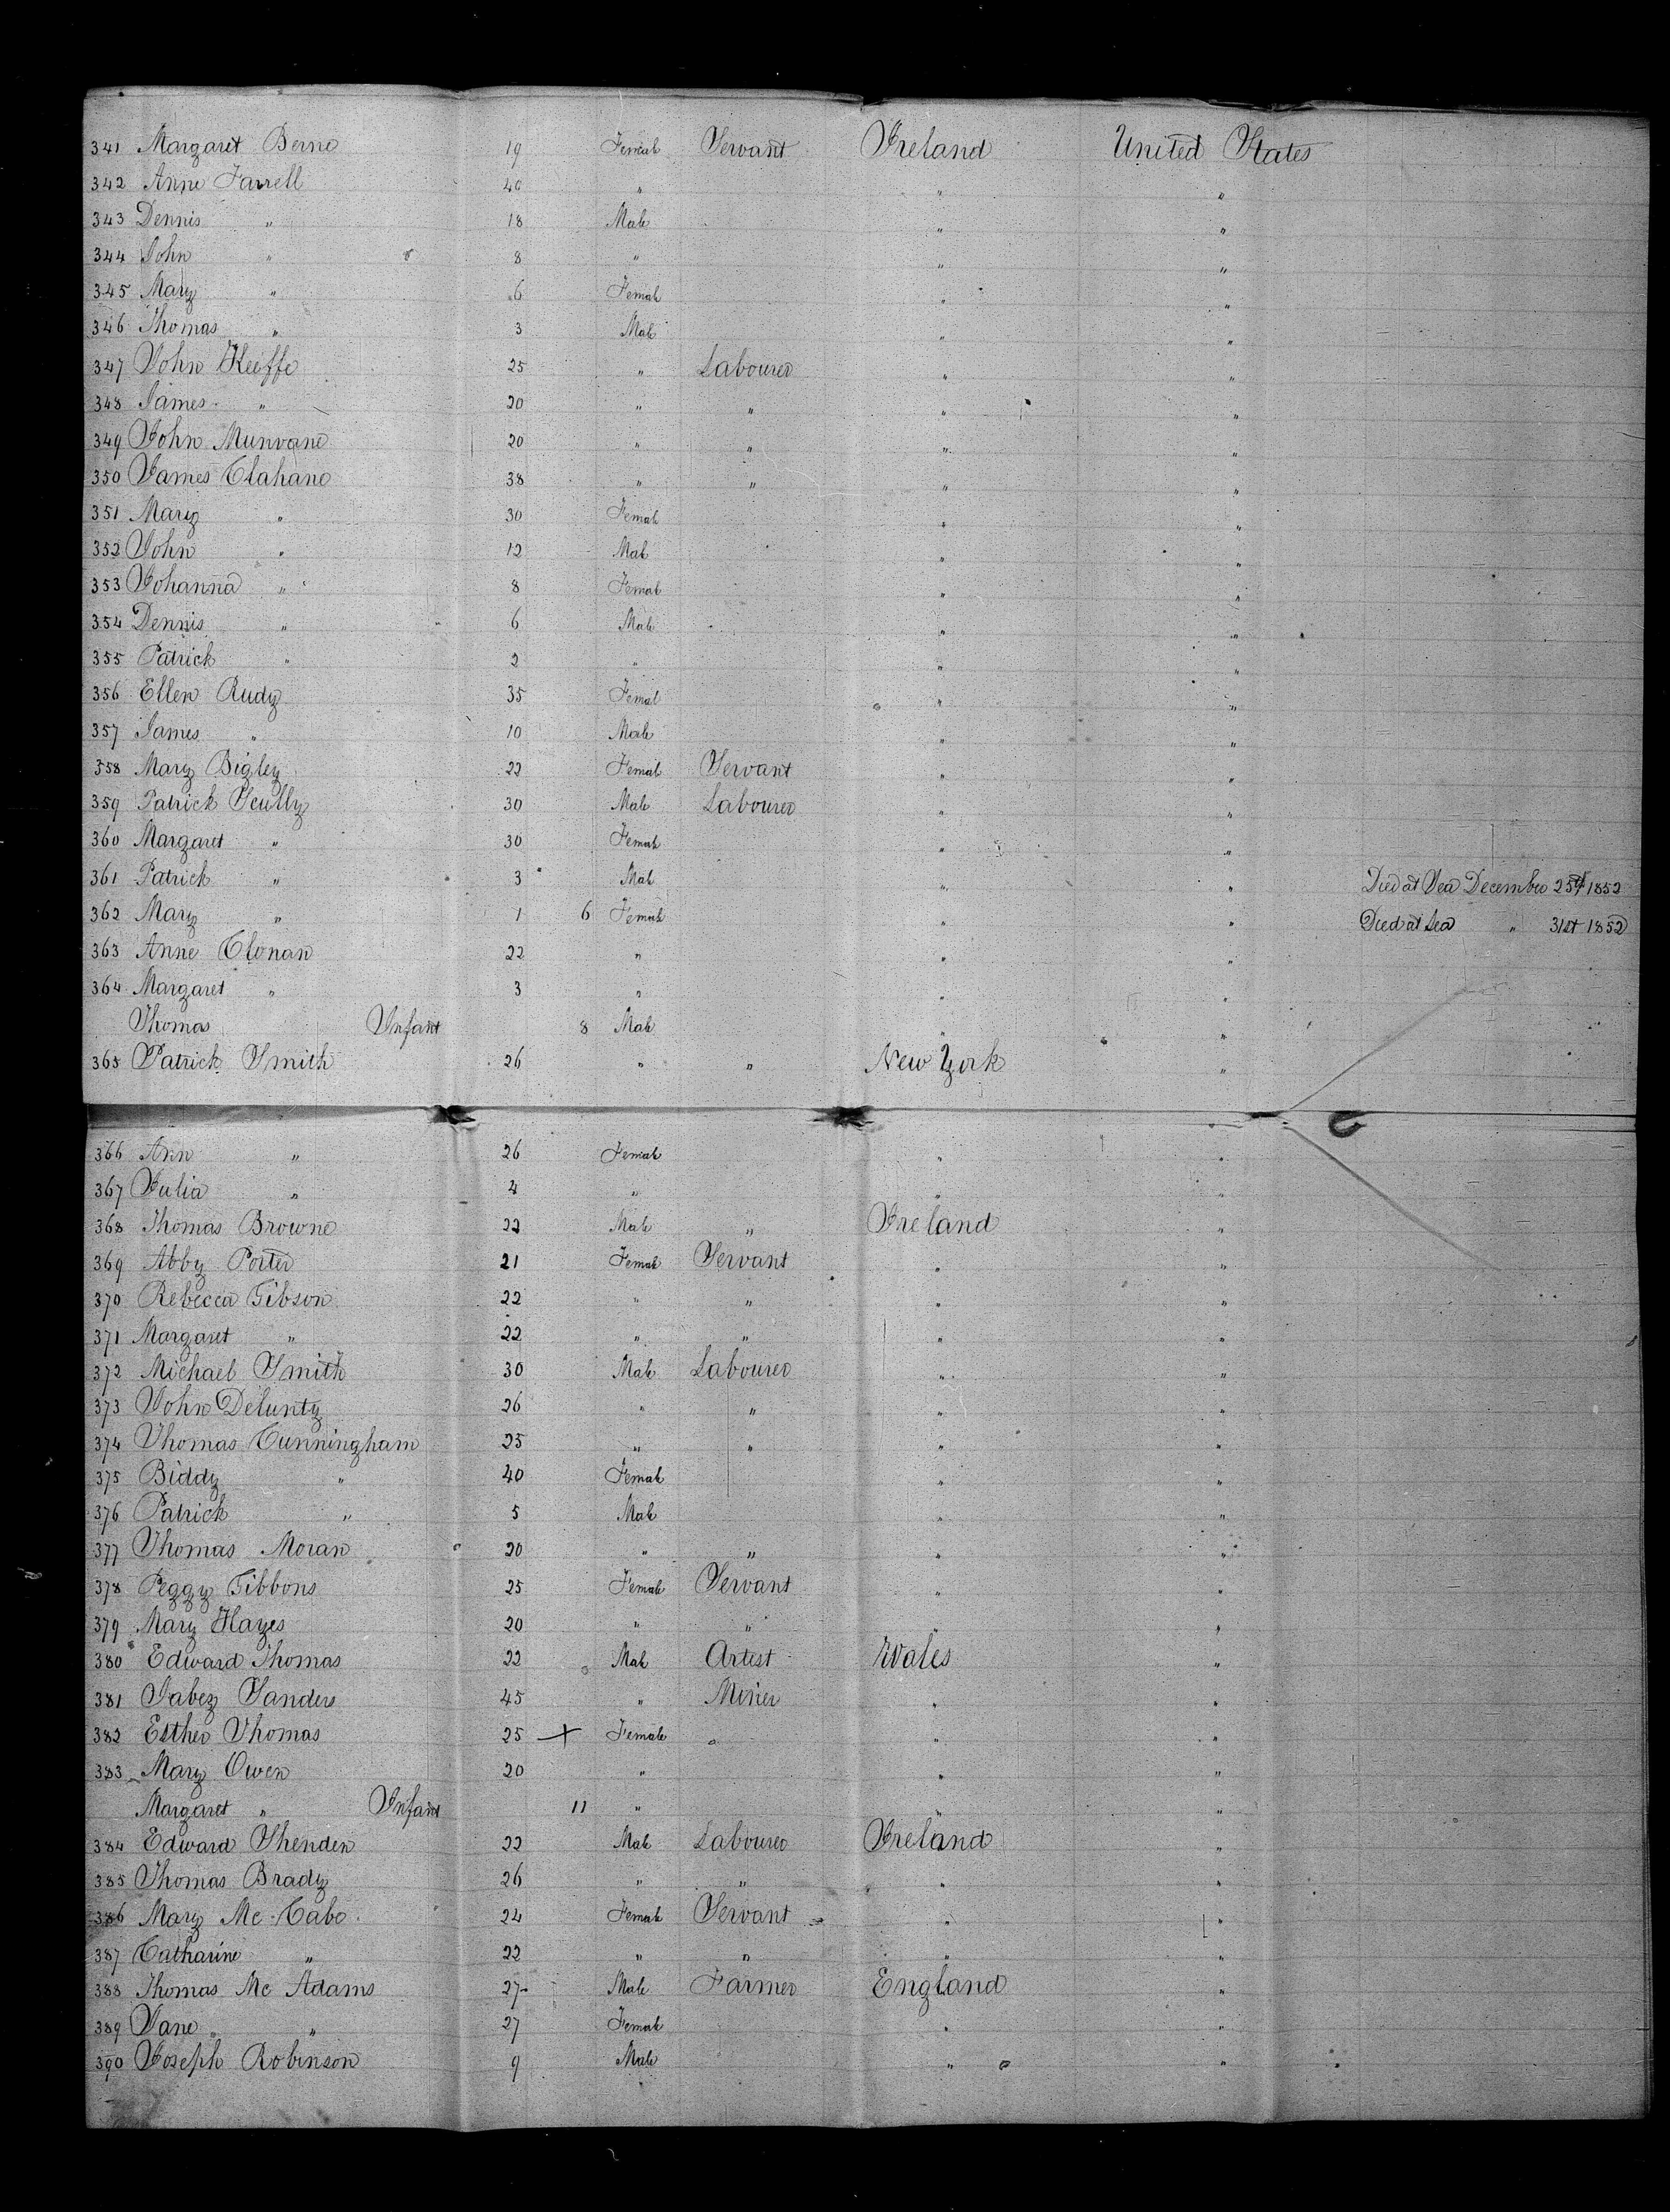 341 Margaret Berne 19 Female Servant Ireland United States
342 Anne Farrell 40 " " "
343 Dennis " 18 Male " "
344 John " 8 " " "
345 Mary " 6 Female " "
346 Thomas " 3 Male " "
347 John Keiffe 25 " Labourer " "
348 James " 20 " " " "
349 John Munvane 20 " " " "
350 James Clahane 38 " " " "
351 Mary " 30 Female " "
352 John " 12 Male " "
353 Johanna " 8 Female " "
354 Dennis " 6 Male " "
355 Patrick " 2 " " "
356 Ellen Rudy 35 Female " "
357 James " 10 Male " "
358 Mary Bigley 22 Female Servant " "
359 Patrick Scully 30 Male Labourer " "
360 Margaret " 30 Female " "
361 Patrick " 3 Male " " Died at Sea December 25th 1852
362 Mary " 1 6 Female " " Died at Sea " 31st 1852
363 Anne Clonan 22 " " "
364 Margaret " 3 " " "
Thomas Infant 8 Male " "
365 Patrick Smith 26 " " New York "
366 Ann " 26 Female " "
367 Julia " 4 " " "
368 Thomas Browne 22 Male " Ireland "
369 Abby Porter 21 Female Servant " "
370 Rebecca Gibson 22 " " " "
371 Margaret " 22 " " " "
372 Michael Smith 30 Male Labourer " "
373 John Delunty 26 " " " "
374 Thomas Cunningham 25 " " " "
375 Biddy " 40 Female " "
376 Patrick " 5 Male " "
377 Thomas Moran 20 " " " "
378 Peggy Gibbons 25 Female Servant " "
379 Mary Hayes 20 " " " "
380 Edward Thomas 22 Male Artist Wales "
381 Jabez Sanders 45 " Miner " "
382 Esther Thomas 25 + Female " "
383 Mary Owen 20 " " "
Margaret " Infant 11 " " "
384 Edward Shenden 22 Male Labourer Ireland "
385 Thomas Brady 26 " " " "
386 Mary Mc Cabe 24 Female Servant " "
387 Catharine " 22 " " " "
388 Thomas Mc Adams 27 Male Farmer England "
389 Jane " 27 Female " "
390 Joseph Robinson 9 Male " "